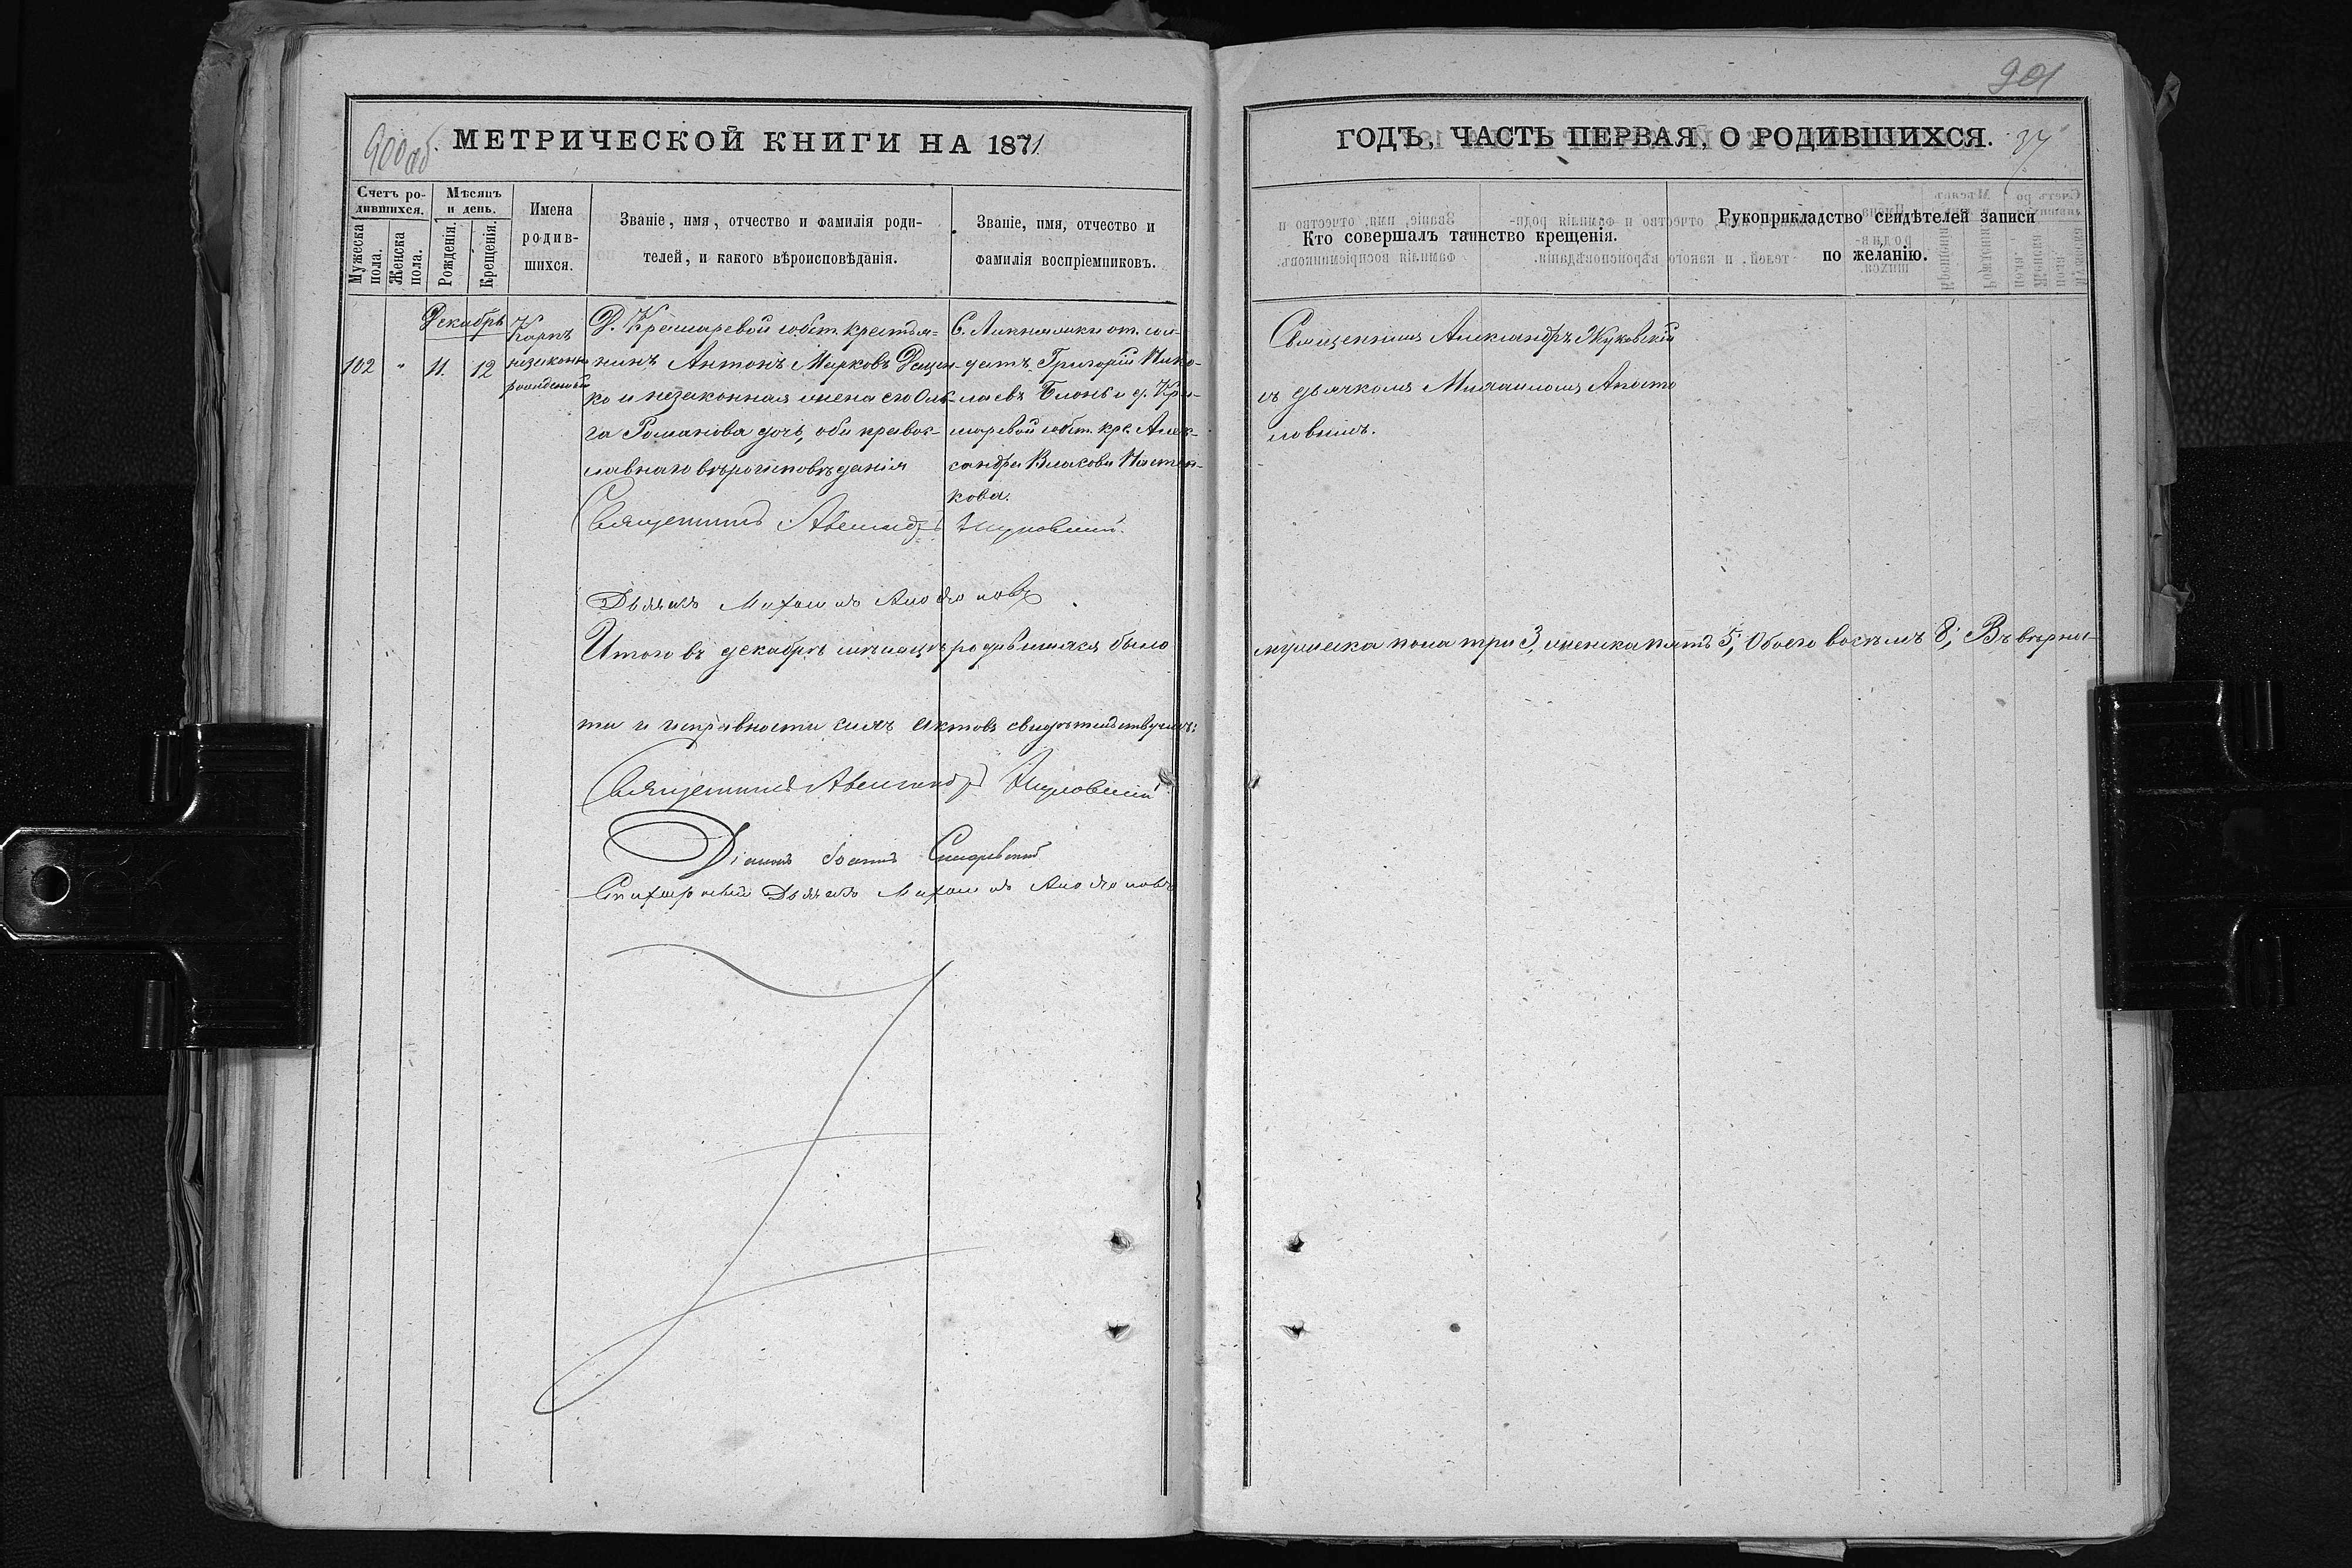 900 об.
МЕТРИЧЕСКОЙ КНИГИ НА 1871.
Счетъ ро-
дившихся.
Мужеска пола.
Женска пола.
Мѣсяцъ
и день.
Рожденія.
Крещенія.
Имена
родив-
шихся.
Званіе, имя, отчество и фамилія роди-
телей, и какого вѣроисповѣданія.
Званіе, имя, отчество и
фамилія воспріемниковъ.
Декабрь
102 " 11. 12
Карпъ
незаконно
рожденный
Д. Крамаревой собст. крестья-
нинъ Антонъ Марковъ Дацен-
ко и незаконная жена его Оль-
га Романова дочь, оби правос-
лавнаго вѣроисповѣданія
от. сол-
датъ, Григорій Нико-
лаевъ и д. Кра-
маревой собст. кре. Алек-
сандра Власова
кова.
Священникъ Александръ Жуковскій.
Дьячекъ Михаилъ Апостоловъ
Итого въ декабрѣ мѣсяцѣ родившихся было
ти и исправности сихъ актовъ свидѣтельствуемъ:
Священникъ Александръ Жуковскій
Діаконъ Іоаннъ
Стихарный Дьячекъ Михаилъ Апостоловъ
901
ГОДЪ, ЧАСТЬ ПЕРВАЯ, О РОДИВШИХСЯ.
37
Кто совершалъ таинство крещенія.
Рукоприкладство свидѣтелей записи
по желанію.
Священникъ Александръ Жуковскій
съ дьячкомъ Михаиломъ Апосто
ловымъ.
мужеска пола три 3, женска пять 5; Обоего восемь 8; Въ вѣрнос-